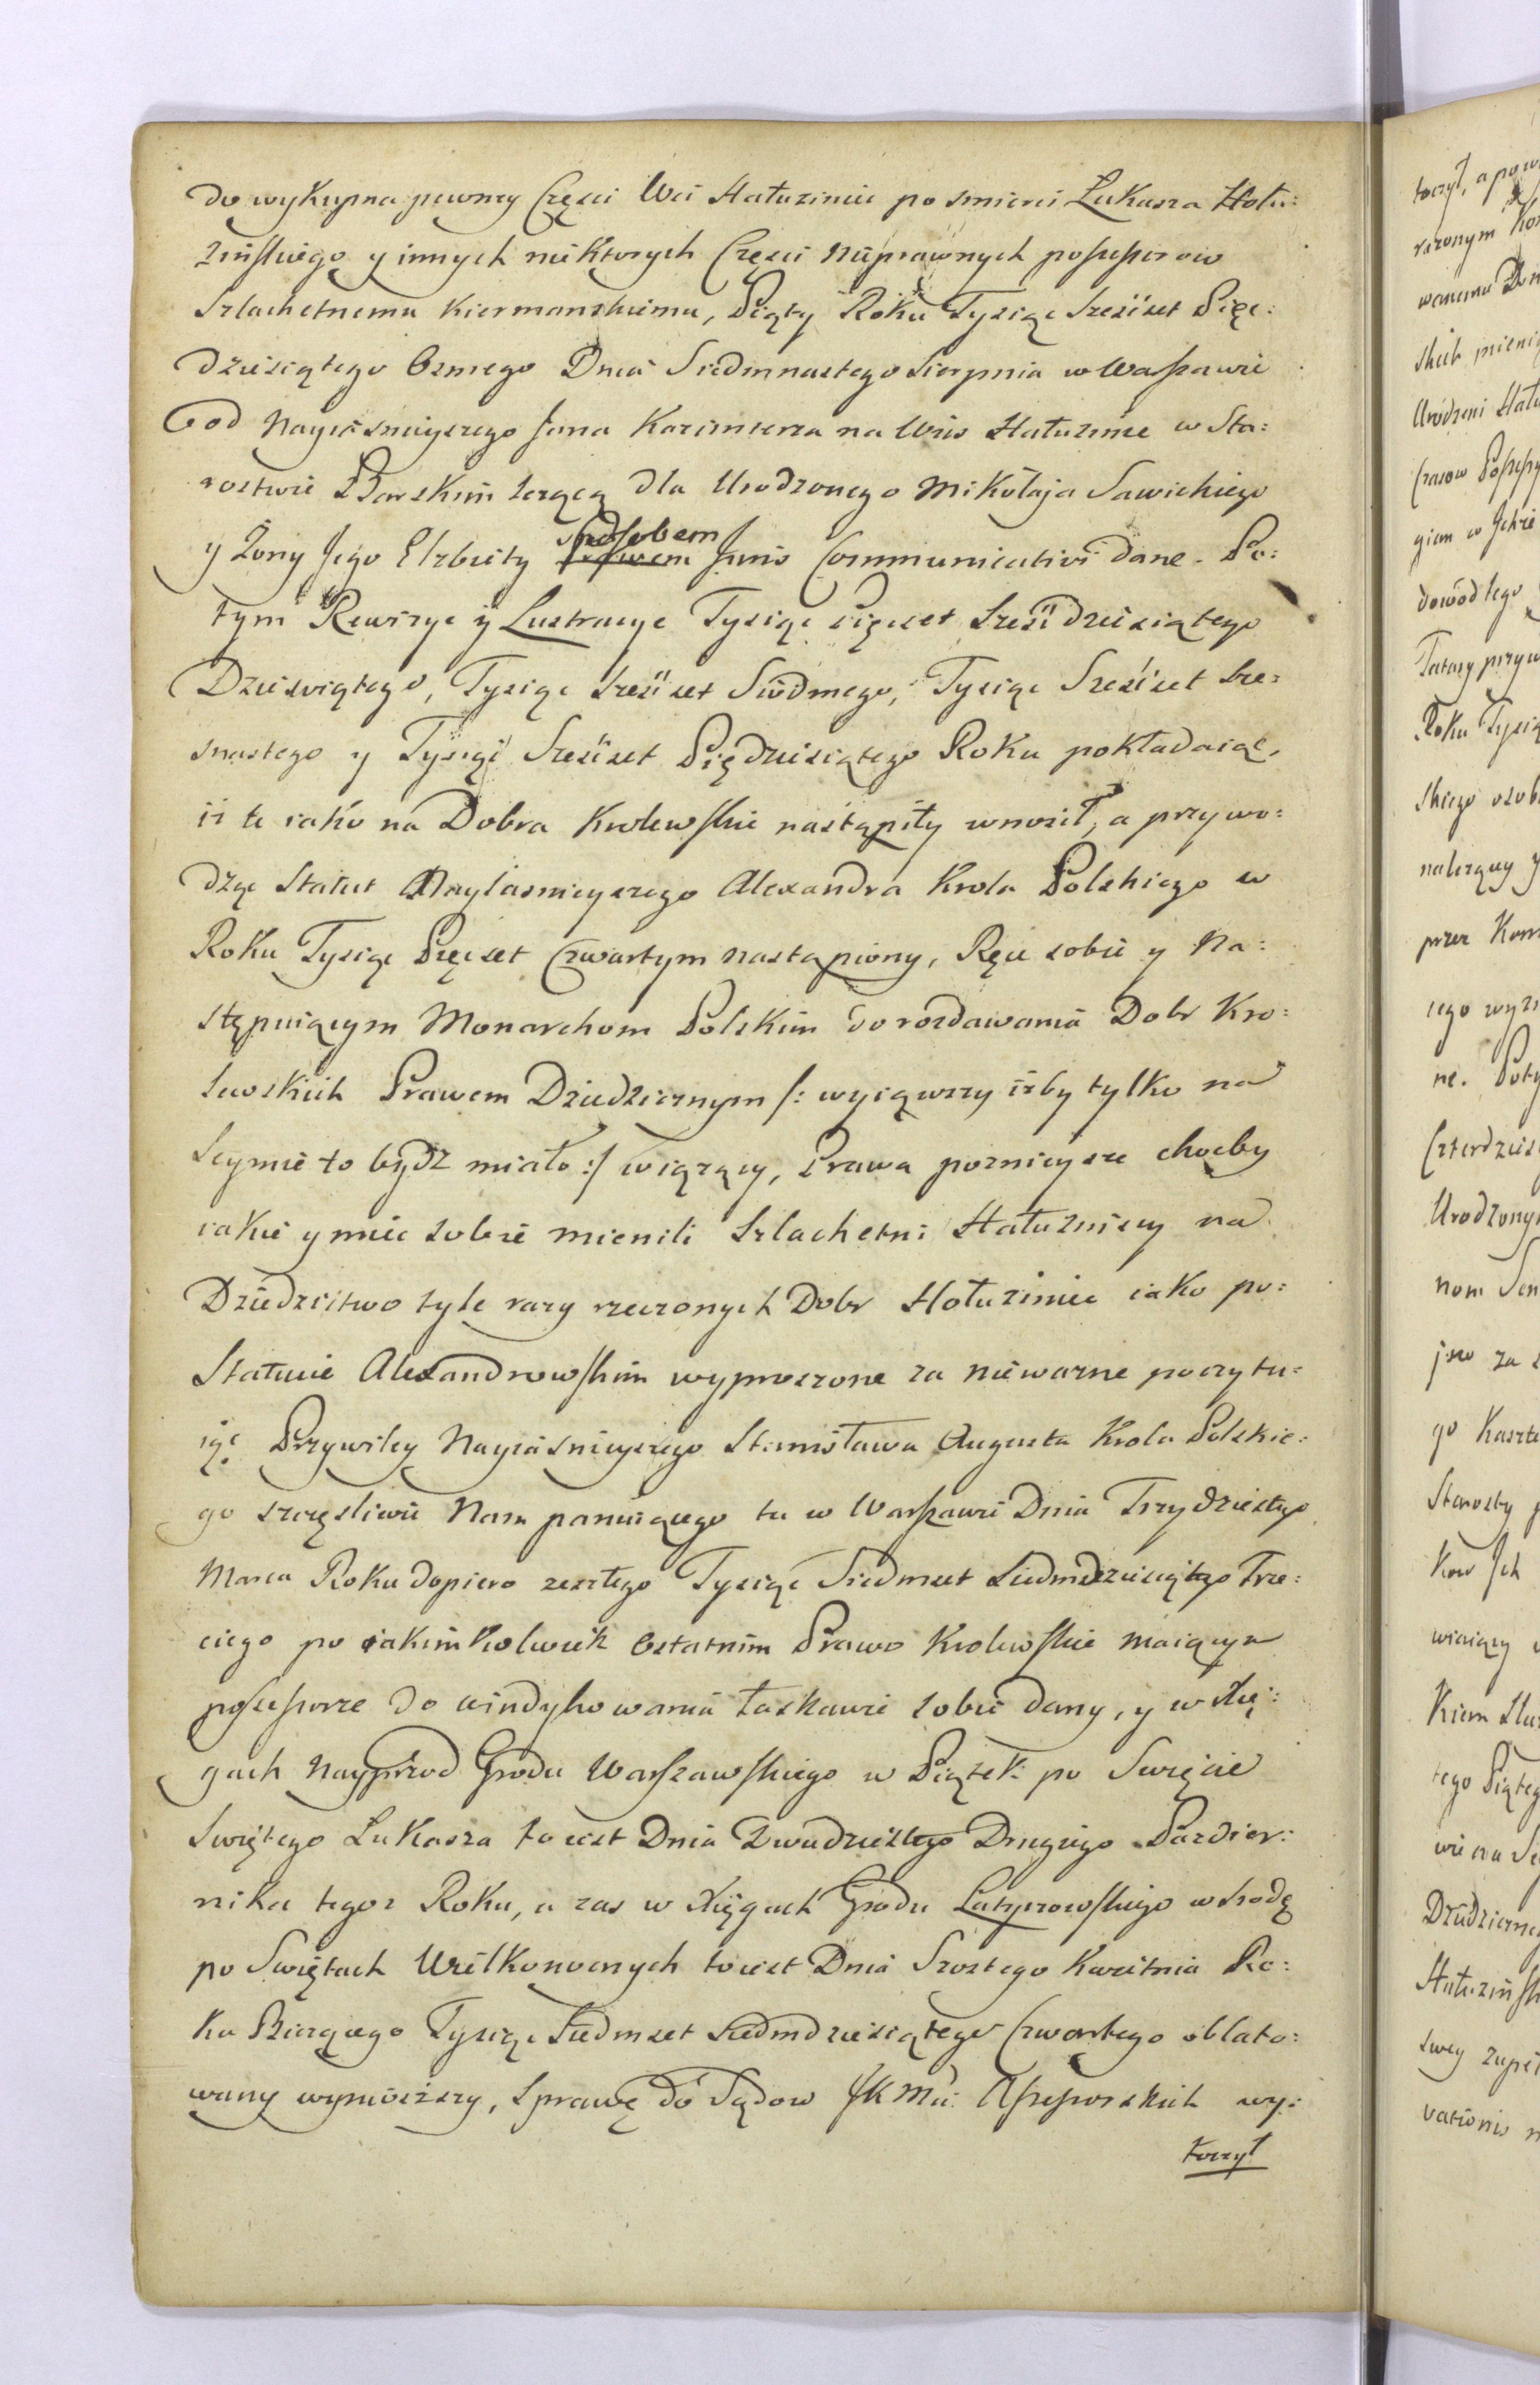 do wykupna pewney Części Wsi Hałuziniec po smierci Łukasza Hołu:
zinskiego y innych niektorych Części nieprawnych possessorow
Szlachetnemu Kiermanskiemu, Piąty Roku Tysiąc Sześćset Pięć:
dziesiątego Osmego Dnia Siedmnastego Sierpnia w Warszawie
od Nayiasnieyszego Jana Kazimierza na Wieś Hałuzince w Sta:
rostwie Barskim leżącą dla Urodzonego Mikołaja Sawickiego
y Żony Jego Elzbiety sposobem Juris Communicativi dane. Po:
tym Rewizye y Lustracye Tysiąc pięcset Sześćdziesiątego
Dziewiątego, Tysiąc Sześćset Siódmego, Tysiąc Sześćset Sze:
snastego y Tysiąc Sześćset Pięćdziesiątego Roku pokładaiąc,
iż te iako na Dobra Krolewskie nastąpiły wnosił, a przywo:
dząc Statut Nayiasnieyszego Alexandra Krola Polskiego w
Roku Tysiąc Pięcset Czwartym nastąpiony, Ręce sobie y Na:
stępuiącym Monarchom Polskim do rozdawania Dobr Kro:
lewskich Prawem Dziedzicznym /: wyiąwszy iżby tylko na
Seymie to bydź miało :/ wiążący, Prawa poznieysze choćby
iakie y mieć sobie mienili Szlachetni Hałuzinscy na
Dziedzictwo tyle razy rzeczonych Dobr Hołuziniec iako po:
Statucie Alexandrowskim wyproszone za nieważne poczytu:
iąc Przywiley Nayiasnieyszego Stanisława Augusta Krola Polskie:
go szczęsliwie Nam panuiącego tu w Warszawie Dnia Trzydziestego
Marca Roku dopiero zeszłego Tysiąc Siedmset Siedmdziesiątego Trze:
ciego po iakimkolwiek Ostatnim Prawo Krolewskie maiącym
possessorze do windykowania łaskawie sobie dany, y w Xię:
gach Nayprzod Grodu Warszawskiego w Piątek po Swięcie
Swiętego Łukasza to iest Dnia Dwudziestego Drugiego Pazdier:
nika tegoż Roku, a zas w Xięgach Grodu Latyczowskiego w Srodę
po Swiętach Wielkonocnych to iest Dnia Szostego Kwietnia Ro:
ku Bieżącego Tysiąc Siedmset Siedmdziesiątego Czwartego oblato:
wany wyniosszy, Sprawę do Sądow JK Mci Assessorskich wy:
toczył